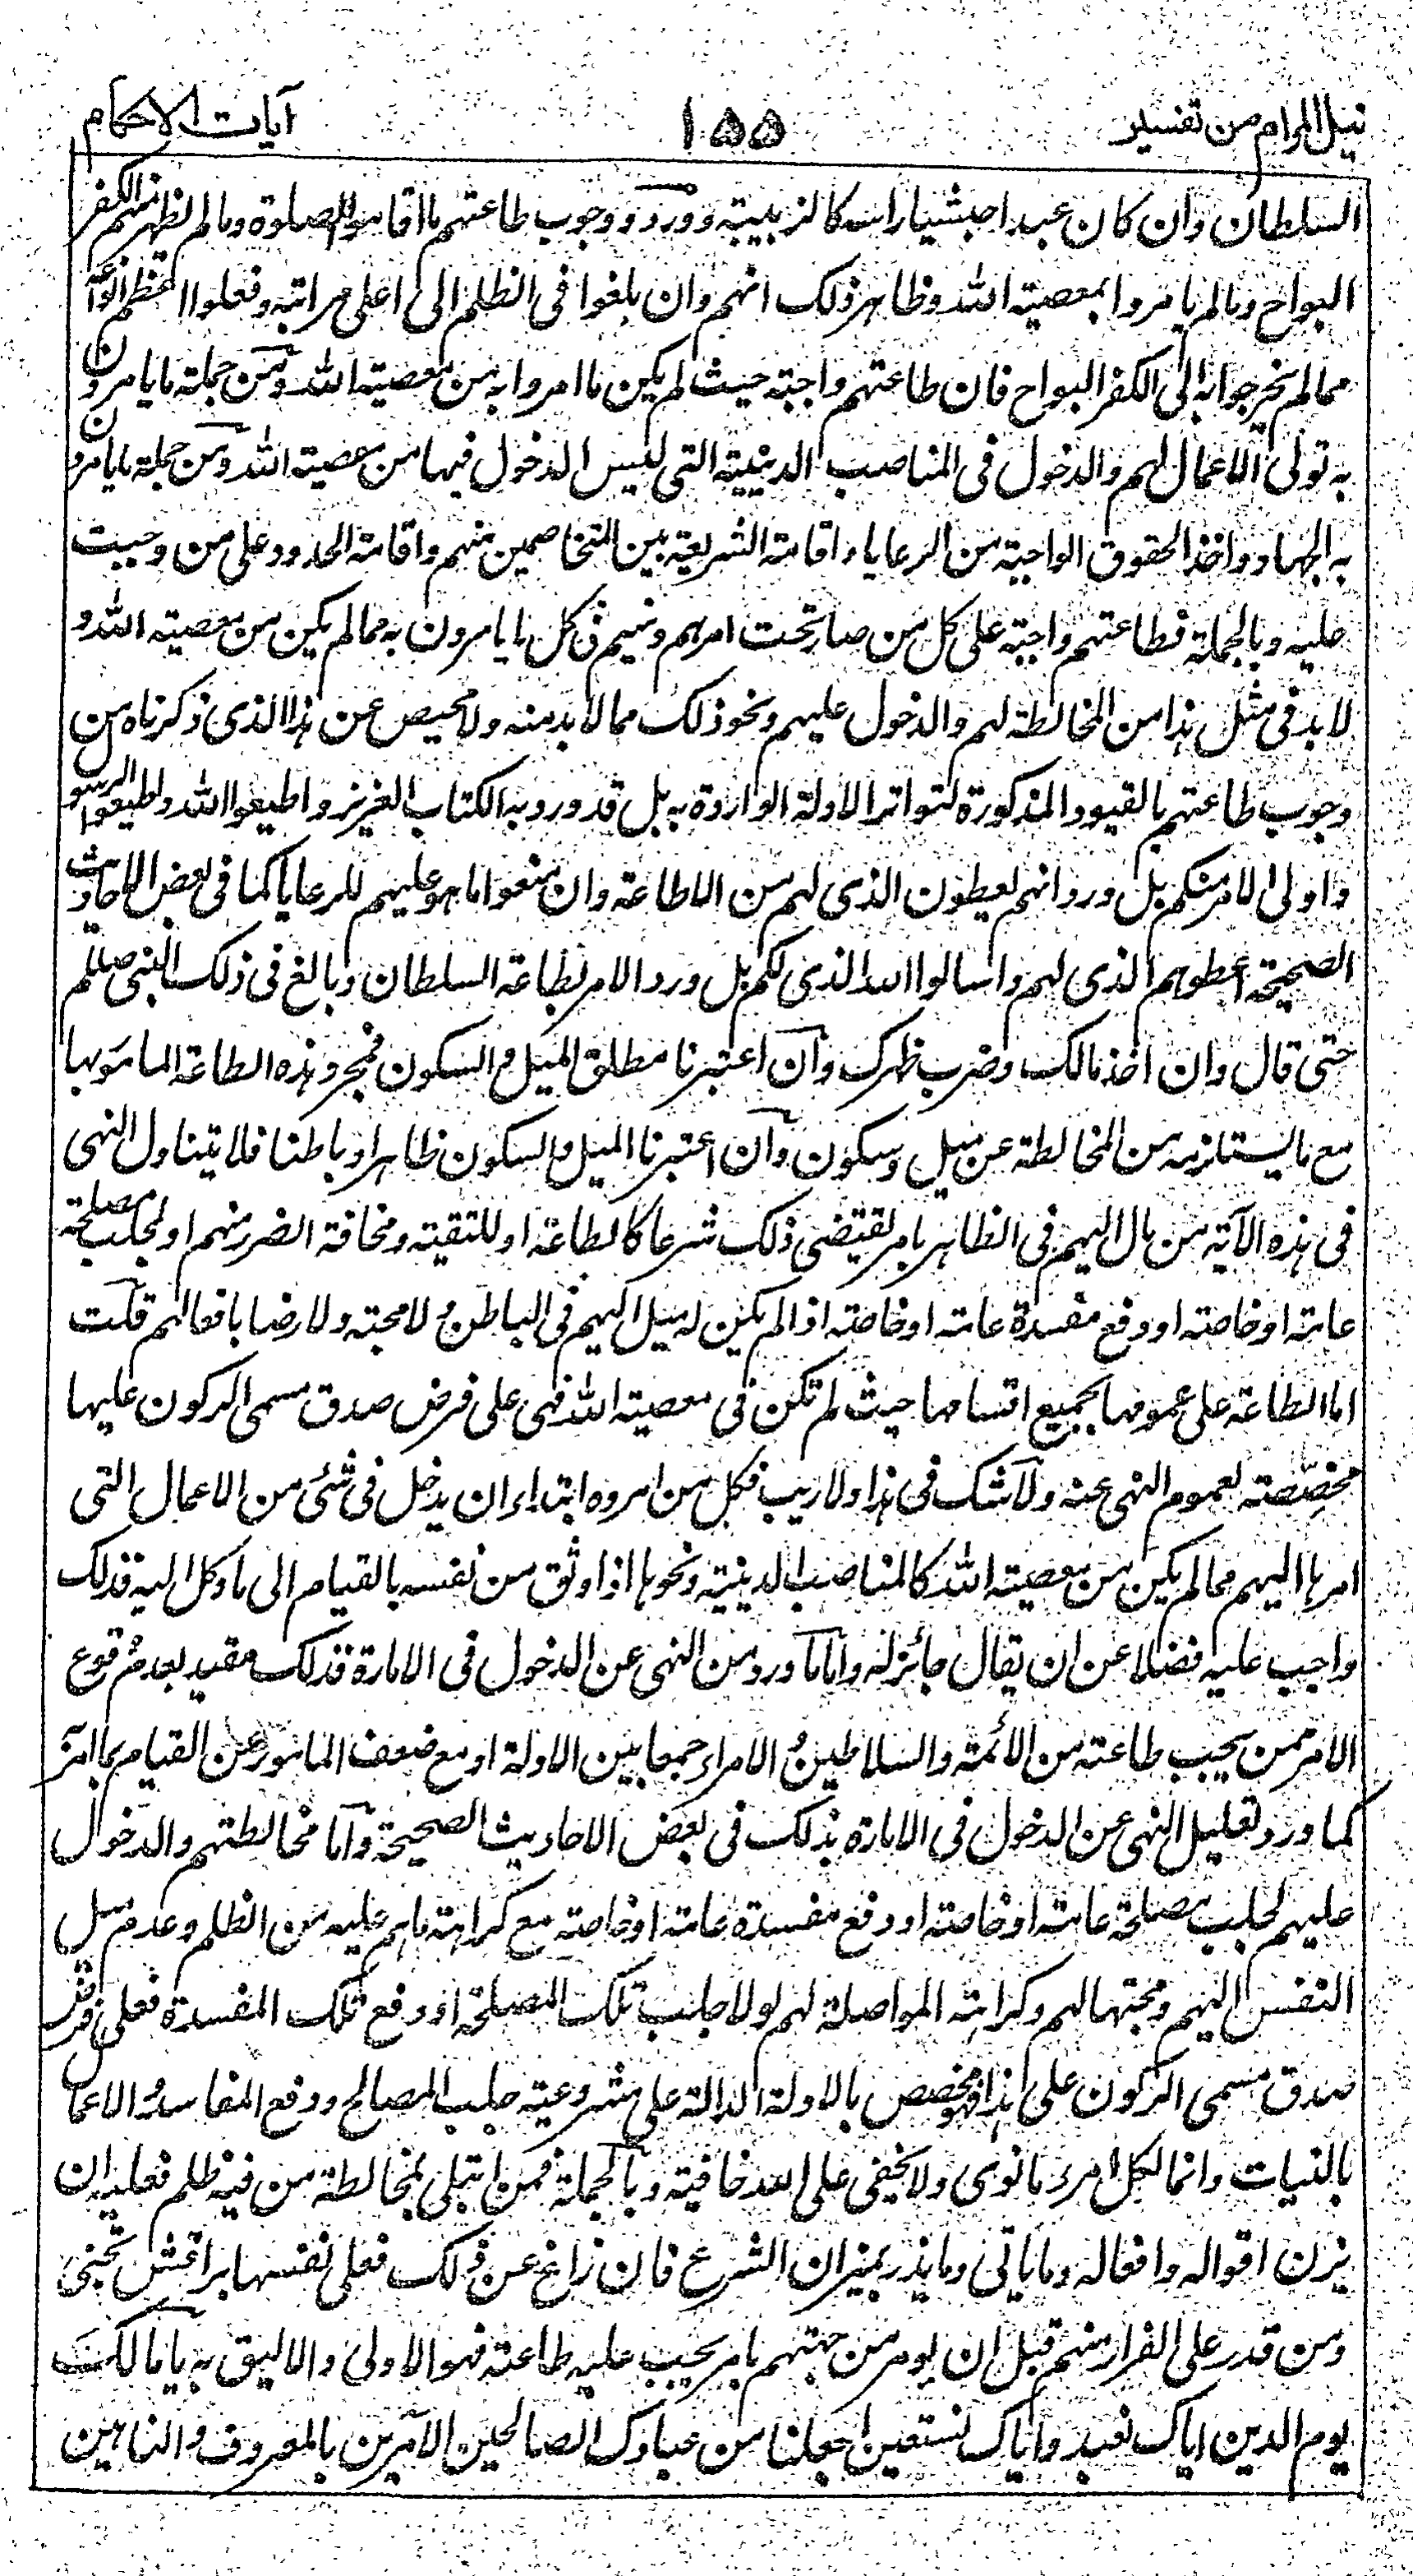 نيل المرام من تفسير ١٥٥ آيات الاحكام
السلطان وان كان عبدا حبشيا راسه كالزبيبة وورد وجوب طاعتهم ما اقاموا الصلوة وما لم يظهر منهم الكفر
البواح وما لم يامروا بمعصية الله وظاهر ذلك انهم وان بلغوا فى الظلم الى اعلى مراتبه وفعلوا اعظم انواعه
مما لم يخرجوا به الى الكفر البواح فان طاعتهم واجبة حيث لم يكن ما امروا به من معصية الله ومن جملة ما يامرون
به تولى الاعمال لهم والدخول فى المناصب الدينية التى ليس الدخول فيها من معصية الله ومن جملة ما يامرون
به الجهاد واخذ الحقوق الواجبة من الرعايا واقامة الشريعة بين المتخاصمين منهم واقامة الحدود على من وجبت
عليه وبالجملة فطاعتهم واجبة على كل من صار تحت امرهم ونهيهم فى كل ما يامرون به مما لم يكن من معصية الله و
لا بد فى مثل هذا من المخالطة لهم والدخول عليهم ونحو ذلك مما لا بد منه ولا محيص عن هذا الذى ذكرناه من
وجوب طاعتهم بالقيود المذكورة لتواتر الادلة الواردة به بل قد ورد به الكتاب العزيز واطيعوا الله واطيعوا الرسول
واولى الامر منكم بل ورد انهم يعطون الذى لهم من الاطاعة وان منعوا ما هو عليهم للرعايا كما فى بعض الاحاديث
الصحيحة اعطوهم الذى لهم واسالوا الله الذى لكم بل ورد الامر بطاعة السلطان وبالغ فى ذلك النبى صللم
حتى قال وان اخذ مالك وضرب ظهرك وان اعتبرنا مطلق الميل والسكون فمجرد هذه الطاعة المامور بها
مع ما يستلزمه من المخالطة عن ميل وسكون وان اعتبرنا الميل والسكون ظاهرا وباطنا فلا يتناول النهى
فى هذه الآية من مال اليهم فى الظاهر بامر يقتضى ذلك شرعا كالطاعة او للتقية ومخافة الضرر منهم او لجلب مصلحة
عامة او خاصة او دفع مفسدة عامة او خاصة اذا لم يكن له ميل اليهم فى الباطن ولا محبة ولا رضا بافعالهم قلت
اما الطاعة على عمومها بجميع اقسامها حيث لم تكن فى معصية الله فهى على فرض صدق مسمى الركون عليها
مخصصة لعموم النهى عنه ولا شك فى هذا ولا ريب فكل من امروه ابتداء ان يدخل فى شئ من الاعمال التى
امرها اليهم مما لم يكن من معصية الله كالمناصب الدينية ونحوها اذا وثق من نفسه بالقيام الى ما وكل اليه فذلك
واجب عليه فضلا عن ان يقال جائز له واما ما ورد من النهى عن الدخول فى الامارة فذلك مقيد بعدم وقوع
الامر ممن يجب طاعته من الأئمة والسلاطين والامراء جمعا بين الادلة او مع ضعف المامور عن القيام بما امر
كما ورد تعليل النهى عن الدخول فى الامارة بذلك فى بعض الاحاديث الصحيحة واما مخالطتهم والدخول
عليهم لجلب مصلحة عامة او خاصة او دفع مفسدة عامة او خاصة مع كراهة ما هم عليه من الظلم وعدم ميل
النفس اليهم ومحبتها لهم وكراهة المواصلة لهم لولا جلب تلك المصلحة او دفع تلك المفسدة فعلى فرض
صدق مسمى الركون على هذا فهو مخصص بالادلة الدالة على مشروعية جلب المصالح ودفع المفاسد والاعمال
بالنيات وانما لكل امرء ما نوى ولا يخفى على الله خافية وبالجملة فمن ابتلى بمخالطة من فيه ظلم فعليه ان
يزن اقواله وافعاله وما ياتى وما يذر بميزان الشرع فان زاغ عن ذلك فعلى نفسها براقش تجنى
ومن قدر على الفرار منهم قبل ان يومر من جهتهم بامر يجب عليه طاعته فهو الاولى والاليق به يا مالك
يوم الدين اياك نعبد واياك نستعين اجعلنا من عبادك الصالحين الآمرين بالمعروف والناهين